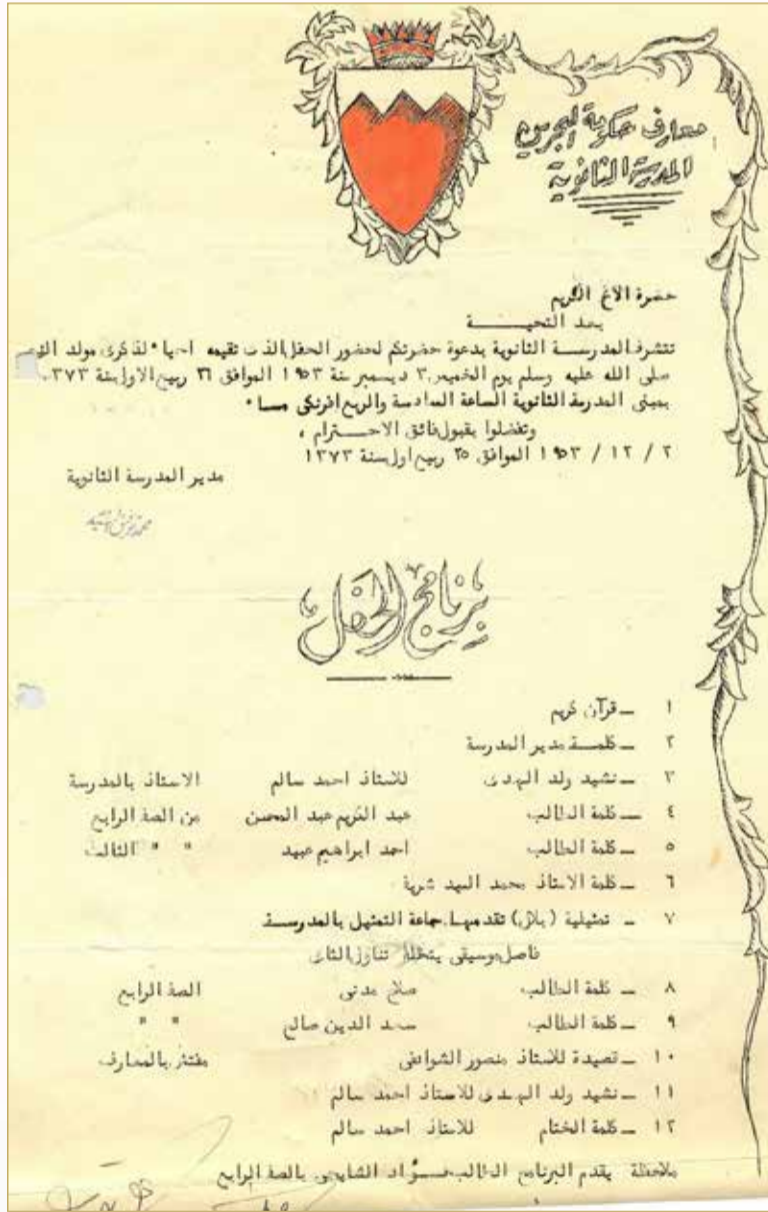 معارف حكومة البحرين
المدرسة الثانوية
حضرة الاخ الكريم
بعد التحيــــــة
تتشرف المدرسـة الثانوية بدعوة حضرتكم لحضور الحفل الذى تقيمه احياء لذكرى مولد
صلى الله عليه وسلم يوم الخميس ٣ ديسمبر سنة ١٩٥٣ الموافق ٢٦ ربيع الاول سنة ١٣٧٣
بمبنى المدرسة الثانوية الساعة السادسة والربع افرنكى مساء
وتفضلوا بقبول فائق الاحــترام ،
٢ / ١٢ / ١٩٥٣ الموافق ٢٥ ربيع اول سنة ١٣٧٣
مدير المدرسة الثانوية
برنامج الحفل
١ ـ قرآن كريم
٢ ـ كلمـة مدير المدرسة
٣ ـ نشيد ولد الهدى للاستاذ احمد سالم الاستاذ بالمدرسة
٤ ـ كلمة الطالب عبد الكريم عبد المحسن من الصف الرابع
٥ ـ كلمة الطالب احمد ابراهيم عبيد " " الثالث
٦ ـ كلمة الاستاذ محمد السيد شربة
٧ ـ تمثيلية ( بلال ) تقدمهـا جماعة التمثيل بالمدرســة
فاصل موسيقى يتخلله تناول الشاى
٨ ـ كلمة الطالب صلاح مدنى الصف الرابع
٩ ـ كلمة الطالب سعد الدين صالح " "
١٠ ـ قصيدة للاستاذ منصور الشوافى مفتش بالمعارف
١١ ـ نشيد ولد الهدى للاستاذ احمد سالم
١٢ ـ كلمة الختام للاستاذ احمد سالم
ملاحظة يقدم البرنامج الطالب فــؤاد الشايجى بالصف الرابع